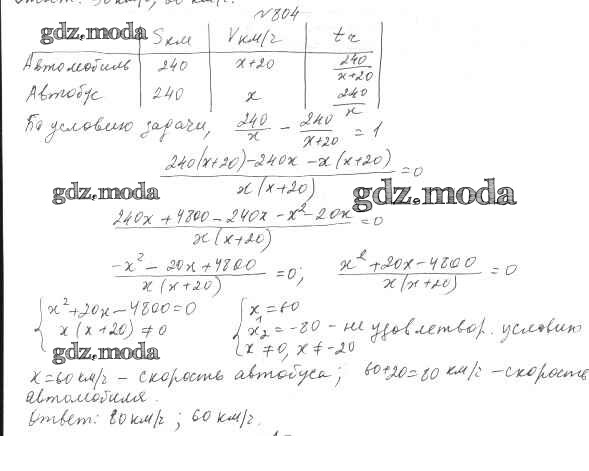 №804
gdz.moda S км | V км/г | t г
Автомобиль | 240 | x+20 | 240/(x+20)
Автобус | 240 | x | 240/x
По условию задачи, 240/x − 240/(x+20) = 1
(240(x+20)−240x−x(x+20))/(x(x+20)) = 0
gdz.moda gdz.moda
(240x+4800−240x−x²−20x)/(x(x+20)) = 0
(−x²−20x+4800)/(x(x+20)) = 0; (x²+20x−4800)/(x(x+20)) = 0
{ x²+20x−4800=0 { x₁=60
x(x+20)≠0 x₂=−80 – не удовлетвор. условию
gdz.moda x≠0, x≠−20
x=60 км/г – скорость автобуса; 60+20=80 км/г – скорость
автомобиля.
Ответ: 80 км/г; 60 км/г.